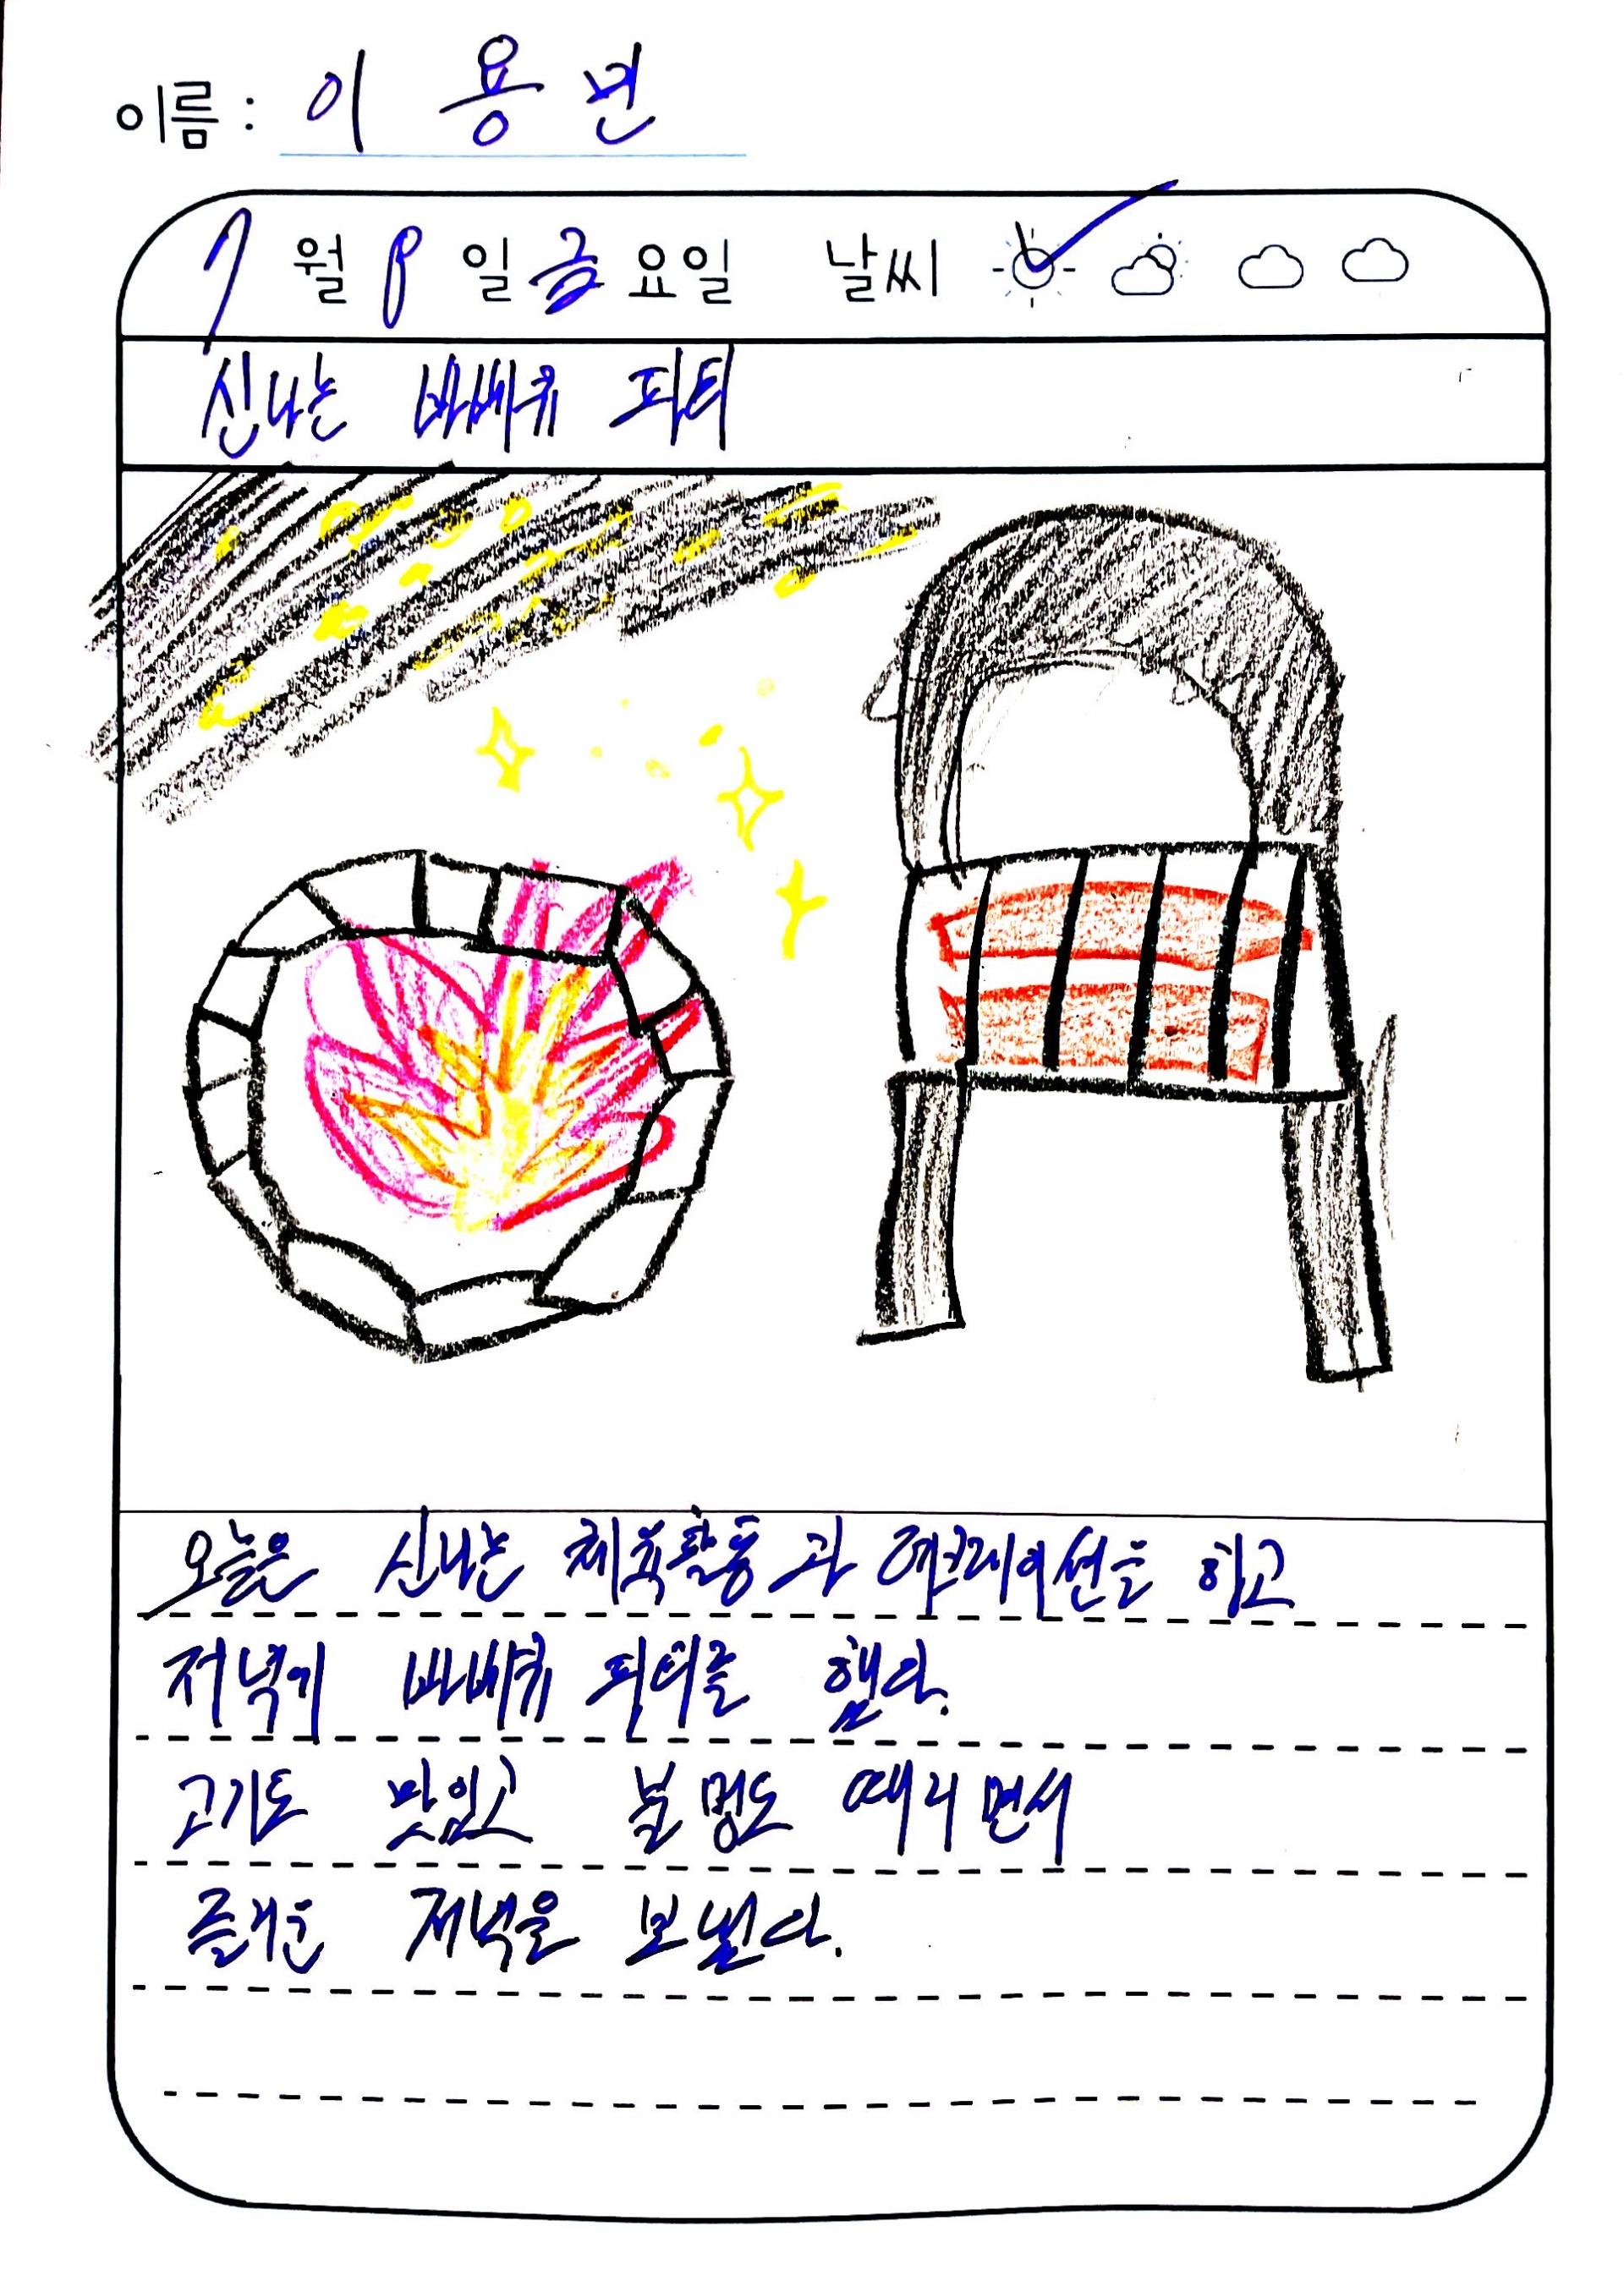 이름 : 이용민
7월 8일 금요일 날씨
신나는 바베큐 파티
오늘은 신나는 체육활동과 레크레이션을 하고
저녁기 바베큐 파티를 했다.
고기도 맛있고 불멍도 때리면서
즐거운 저녁을 보냈다.